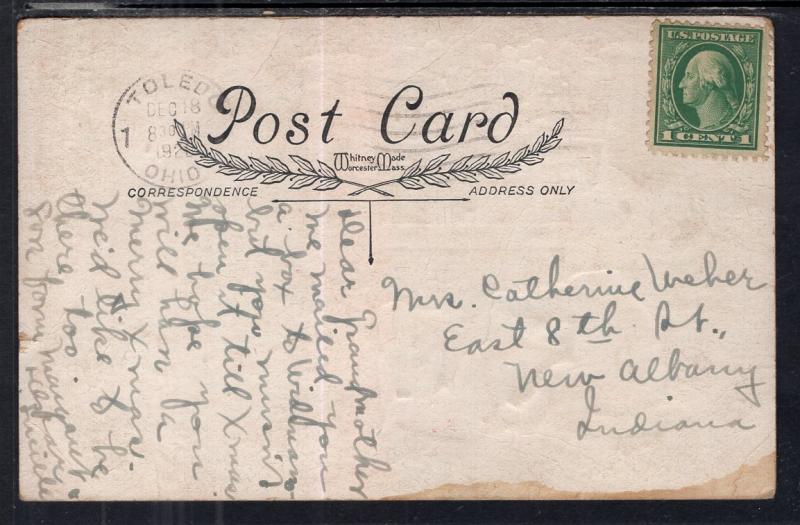 TOLEDO
DEC 18
8 30 PM
192
OHIO
1
Post Card
Whitney Made
Worcester, Mass.
CORRESPONDENCE
ADDRESS ONLY
U.S. POSTAGE
1 CENT 1
Dear Grandmother
We mailed you
a box to William
but you mustn't
open it till Xmas
We hope you
will have a
merry Xmas.
We'd like to be
there too.
Son form Margaret
Mrs. Catherine Weber
East 8th St.,
New Albany
Indiana